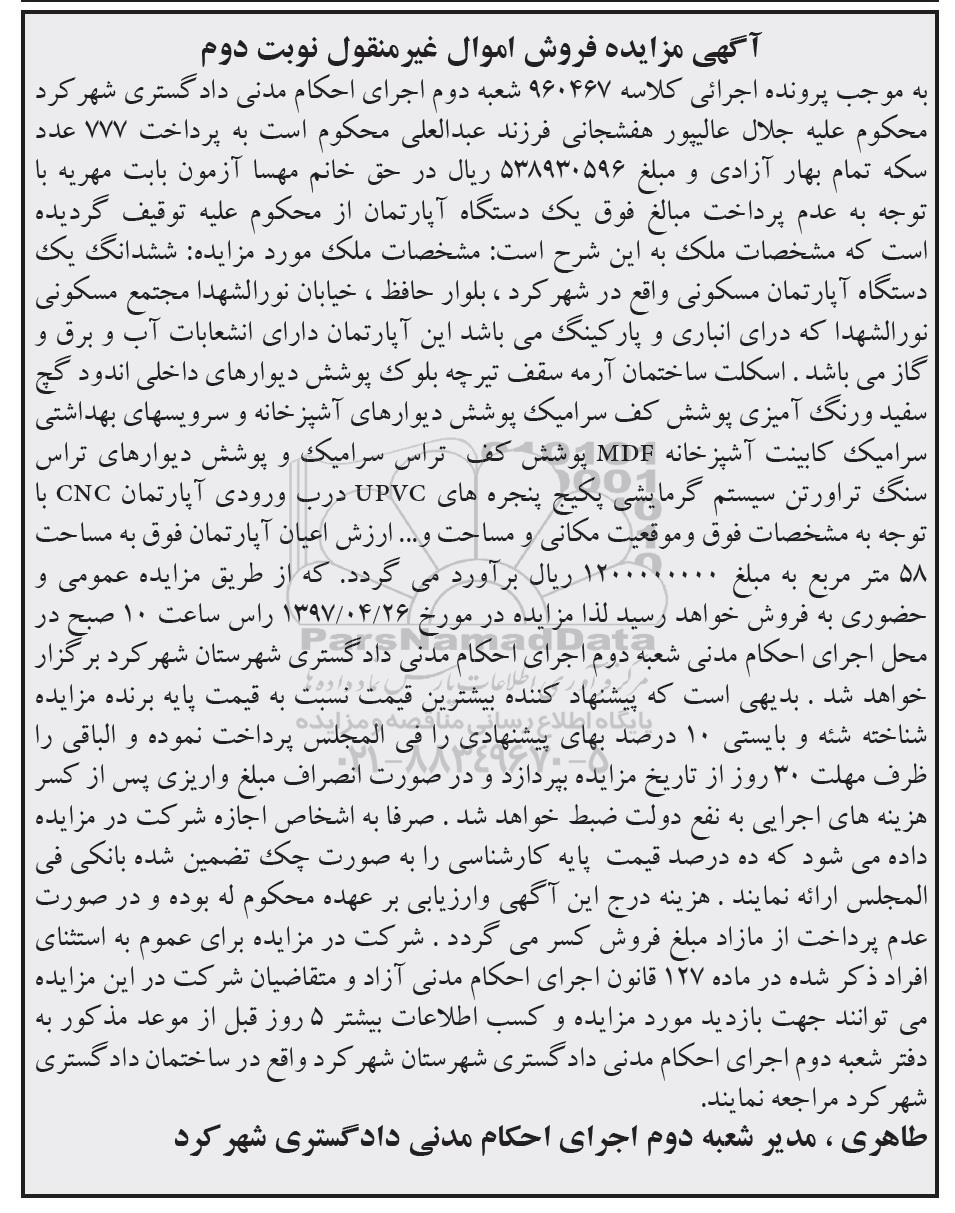 آگهی مزایده فروش اموال غیرمنقول نوبت دوم
به موجب پرونده اجرائی کلاسه ۹۶۰۴۶۷ شعبه دوم اجرای احکام مدنی دادگستری شهرکرد
محکوم علیه جلال عالیپور هفشجانی فرزند عبدالعلی محکوم است به پرداخت ۷۷۷ عدد
سکه تمام بهار آزادی و مبلغ ۵۳۸۹۳۰۵۹۶ ریال در حق خانم مهسا آزمون بابت مهریه با
توجه به عدم پرداخت مبالغ فوق یک دستگاه آپارتمان از محکوم علیه توقیف گردیده
است که مشخصات ملک به این شرح است: مشخصات ملک مورد مزایده: ششدانگ یک
دستگاه آپارتمان مسکونی واقع در شهرکرد ، بلوار حافظ ، خیابان نورالشهدا مجتمع مسکونی
نورالشهدا که درای انباری و پارکینگ می باشد این آپارتمان دارای انشعابات آب و برق و
گاز می باشد . اسکلت ساختمان آرمه سقف تیرچه بلوک پوشش دیوارهای داخلی اندود گچ
سفید ورنگ آمیزی پوشش کف سرامیک پوشش دیوارهای آشپزخانه و سرویسهای بهداشتی
سرامیک کابینت آشپزخانه MDF پوشش کف تراس سرامیک و پوشش دیوارهای تراس
سنگ تراورتن سیستم گرمایشی پکیج پنجره های UPVC درب ورودی آپارتمان CNC با
توجه به مشخصات فوق وموقعیت مکانی و مساحت و... ارزش اعیان آپارتمان فوق به مساحت
۵۸ متر مربع به مبلغ ۱۲۰۰۰۰۰۰۰۰ ریال برآورد می گردد. که از طریق مزایده عمومی و
حضوری به فروش خواهد رسید لذا مزایده در مورخ ۱۳۹۷/۰۴/۲۶ راس ساعت ۱۰ صبح در
ParsNamadData
محل اجرای احکام مدنی شعبه دوم اجرای احکام مدنی دادگستری شهرستان شهرکرد برگزار
خواهد شد . بدیهی است که پیشنهاد کننده بیشترین قیمت نسبت به قیمت پایه برنده مزایده
پایگاه اطلاع رسانی مناقصه و مزایده
شناخته شئه و بایستی ۱۰ درصد بهای پیشنهادی را فی المجلس پرداخت نموده و الباقی را
۰۲۱-۸۸۳۴۹۶۷۰-۵
ظرف مهلت ۳۰ روز از تاریخ مزایده بپردازد و در صورت انصراف مبلغ واریزی پس از کسر
هزینه های اجرایی به نفع دولت ضبط خواهد شد . صرفا به اشخاص اجازه شرکت در مزایده
داده می شود که ده درصد قیمت پایه کارشناسی را به صورت چک تضمین شده بانکی فی
المجلس ارائه نمایند . هزینه درج این آگهی وارزیابی بر عهده محکوم له بوده و در صورت
عدم پرداخت از مازاد مبلغ فروش کسر می گردد . شرکت در مزایده برای عموم به استثنای
افراد ذکر شده در ماده ۱۲۷ قانون اجرای احکام مدنی آزاد و متقاضیان شرکت در این مزایده
می توانند جهت بازدید مورد مزایده و کسب اطلاعات بیشتر ۵ روز قبل از موعد مذکور به
دفتر شعبه دوم اجرای احکام مدنی دادگستری شهرستان شهرکرد واقع در ساختمان دادگستری
شهرکرد مراجعه نمایند.
طاهری ، مدیر شعبه دوم اجرای احکام مدنی دادگستری شهرکرد